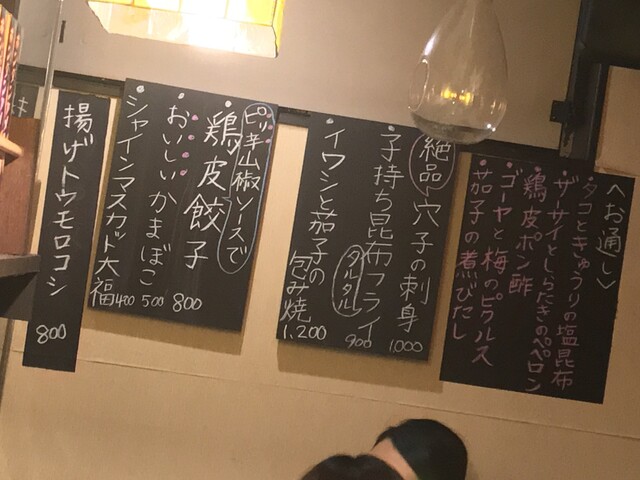 〈お通し〉
タコときゅうりの塩昆布
ザーサイとしらたきのペペロン
鶏皮ポン酢
ゴーヤと梅のピクルス
茄子の煮びたし
絶品 穴子の刺身 1,000
子持ち昆布フライ タルタル 900
イワシと茄子の包み焼 1,200
ピリ辛山椒ソースで
鶏皮餃子 800
おいしいかまぼこ 500
シャインマスカット大福 400
揚げトウモロコシ 800